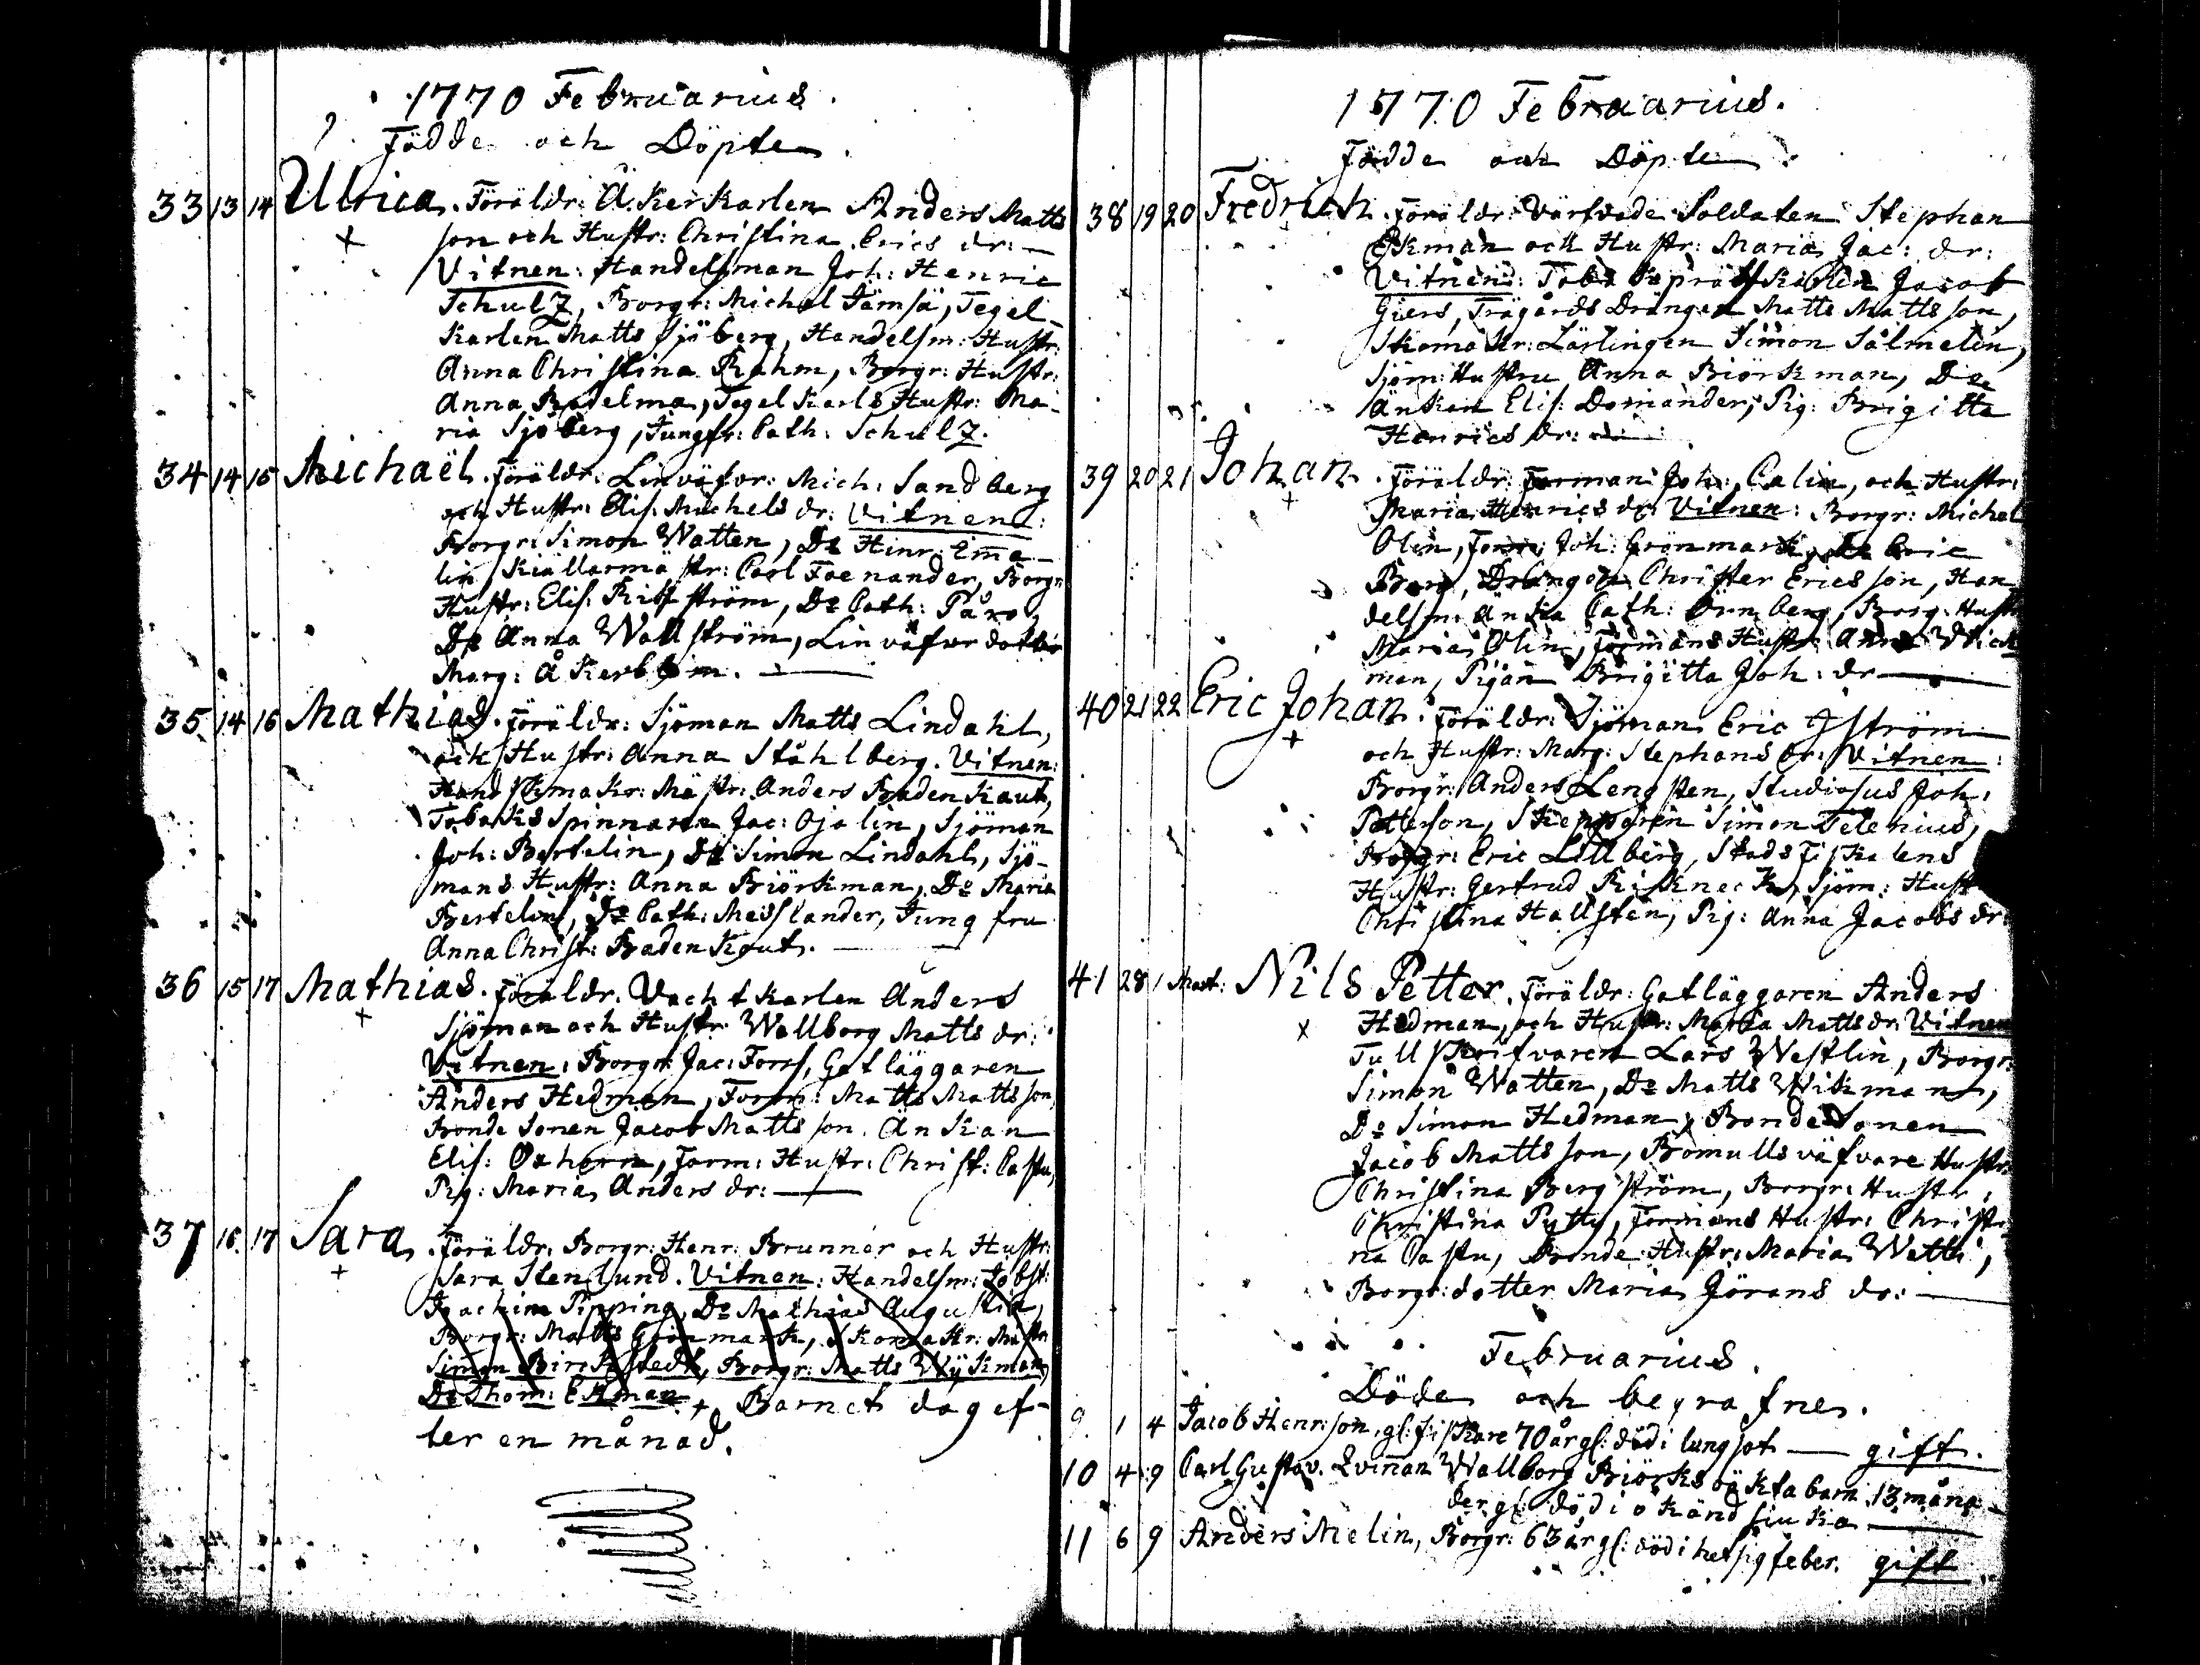 1770 Februarius.
Födde och Döpte.
33 13 14 Ulrica. Föräldr: Åkerkarlen Anders Matts
son och Hustr: Christina Erics dr:
Vitnen: Handelsman Joh: Henric
Schulz, Borgr: Michel Jämsä, Tegel-
karlen Matts Sjöberg, Handelsm: Hustr:
Anna Christina Rahm, Borgr: Hustr:
Anna Tegelkarls Hustr: Ma-
ria Sjöberg, Jungfr: Cath: Schulz.
34 14 15 Michaël. Föräldr: Linväfvr: Mich: Sandberg
och Hustr: Elis: Michels dr: Vitnen:
Borgr: Simon Watten, Do Hinr: Ema-
lin, Kiällarmästr: Carl Foenander, Borgr:
Hustr: Elis: ström, Do Cath:
Do Anna Wallström, Linväfvr dotter
Marg: Åkerblom.
35. 14 16 Mathias. Föräldr: Sjöman Matts Lindahl,
och Hustr: Anna Ståhlberg. Vitnen:
Handskmakr: Mästr: Anders Badenkaut,
Tobaks Spinnaren Jac: Ojalin, Sjöman
Joh: Bertelin, Do Simon Lindahl, Sjö-
mans Hustr: Anna Biörkman, Do Maria
Bertelin, Do Cath: Messlander, Jungfru
Anna Christ: Badenkaut.
36 15 17 Mathias. Föräldr: Vachtkarlen Anders
+ Sjöman och Hustr: Wallborg Matts dr:
Vitnen: Borgr: Jac: Forss, Gatläggaren
Anders Hedman, Form: Matts Mattsson,
Bonde Sonen Jacob Mattsson. Änkan
Elis: Oxhorn, Form: Hustr: Christ: Castu,
Pig: Maria Anders dr:
37 16. 17 Sara. Föräldr: Borgr: Henr: Brunner och Hustr:
+ Sara Stenlund. Vitnen: Handelsm: Jobst:
Joachim Pipping, Do Mathias Augustin,
Borgr: Matts Grönmark, Skomakr: Mästr:
Simon Birckstedt, Borgr: Matts Wÿkman,
Do Thom: Ekman. + Barnets dag ef-
ter en månad.
1770 Februarius.
Födde och Döpte.
38 19 20 Fredrich. Föräldr: Värfvade Soldaten Stephan
Ekman och Hustr: Maria Jac: dr:
Vitnen: Jacob
Giers, Trägårds Drängen Matts Mattsson,
Skomakr: Lärlingen Simon Salmelin,
Sjöm: Hustru Anna Biörkman, Do
Änkan Elis: Domander, Pig: Brigitta
Henrics dr:
39 20 21 Johan. Föräldr: Forman Joh: Calin, och Hustr:
+ Maria Henrics dr: Vitnen: Borgr: Michel
Olin, Form: Joh: Grönmark, Do Eric
Berg, Drängen Christer Ericsson, Han
delsm: Änka Cath: Örnberg, Borg: Hustr
Maria Olin, Formans Hustr: Anna Wick
man, Pigan Brigitta Joh: dr
40 21 22 Eric Johan. Föräldr: Sjöman Eric Iström
+ och Hustr: Marg: Stephans dr: Vitnen:
Borgr: Anders Lengsten, Studiosus Joh:
Petterson, Skepparen Simon Telenius,
Borgr: Eric Lillberg, Stads Fiskalens
Hustr: Gertrud Sjöm: Hust
Christina Hallsten, Pig: Anna Jacobs dr:
41 28 1 Mart: Nils Petter. Föräldr: Gatläggaren Anders
x Hedman, och Hustr: Maria Matts dr: Vitnen
Tullskrifvaren Lars Westlin, Borgr:
Simon Watten, Do Matts Wikman,
Do Simon Hedman, Bonde Sonen
Jacob Mattsson, Bomullsväfvare Hustr:
Christina Bergström, Borgr: Hustr:
Christina Pytty, Formans Hustr: Christi-
na Castu, Bonde: Hustr: Maria Watti,
Borgr: dotter Maria Görans dr:
Februarius.
Döde och begrafne.
9. 1 4 Jacob Henrsson, gl: Fiskare 70 år gl: död i lungsot gift.
10 4 9 Carl Gustav. Qvinan Wallborg Biörks oäkta barn 13 måna-
der gl: död i okänd siuka
11 6 9 Anders Melin, Borgr: 63 år gl: död i hetsig feber. gift